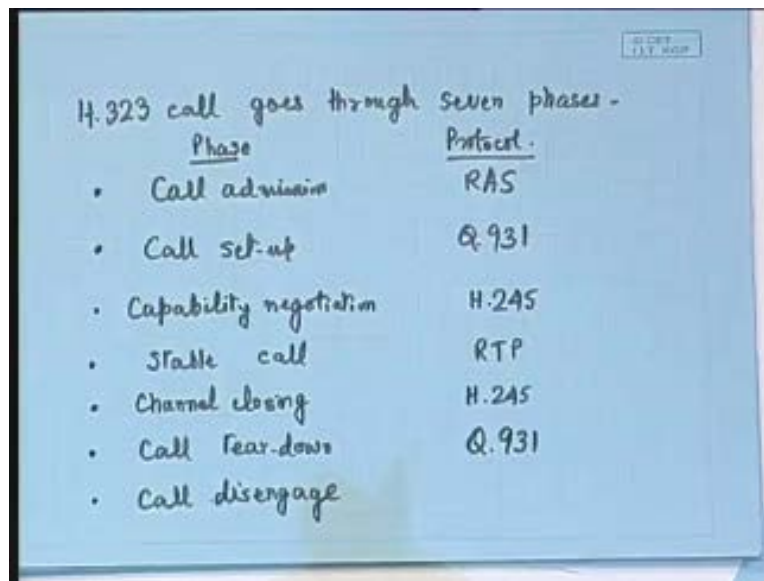 © CET
I.I.T. KGP
H.323 call goes through seven phases -
Phase Protocol.
• Call admission RAS
• Call set-up Q.931
• Capability negotiation H.245
• Stable call RTP
• Channel closing H.245
• Call Tear-down Q.931
• Call disengage